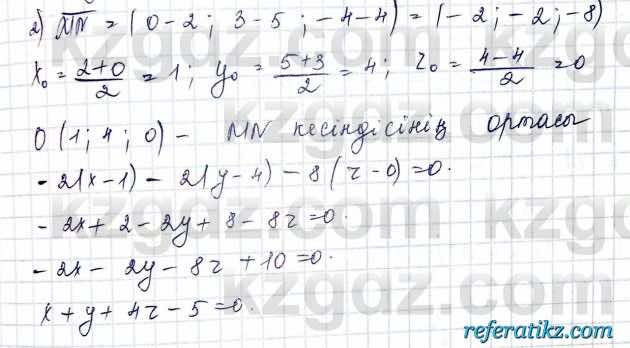 2) MN = (0-2; 3-5; -4-4) = (-2; -2; -8)
x₀ = (2+0)/2 = 1; y₀ = (5+3)/2 = 4; z₀ = (4-4)/2 = 0
O(1; 4; 0) - MN кесіндісінің ортасы
-2(x-1) - 2(y-4) - 8(z-0) = 0.
-2x + 2 - 2y + 8 - 8z = 0.
-2x - 2y - 8z + 10 = 0.
x + y + 4z - 5 = 0.
kzgdz.com
referatikz.com